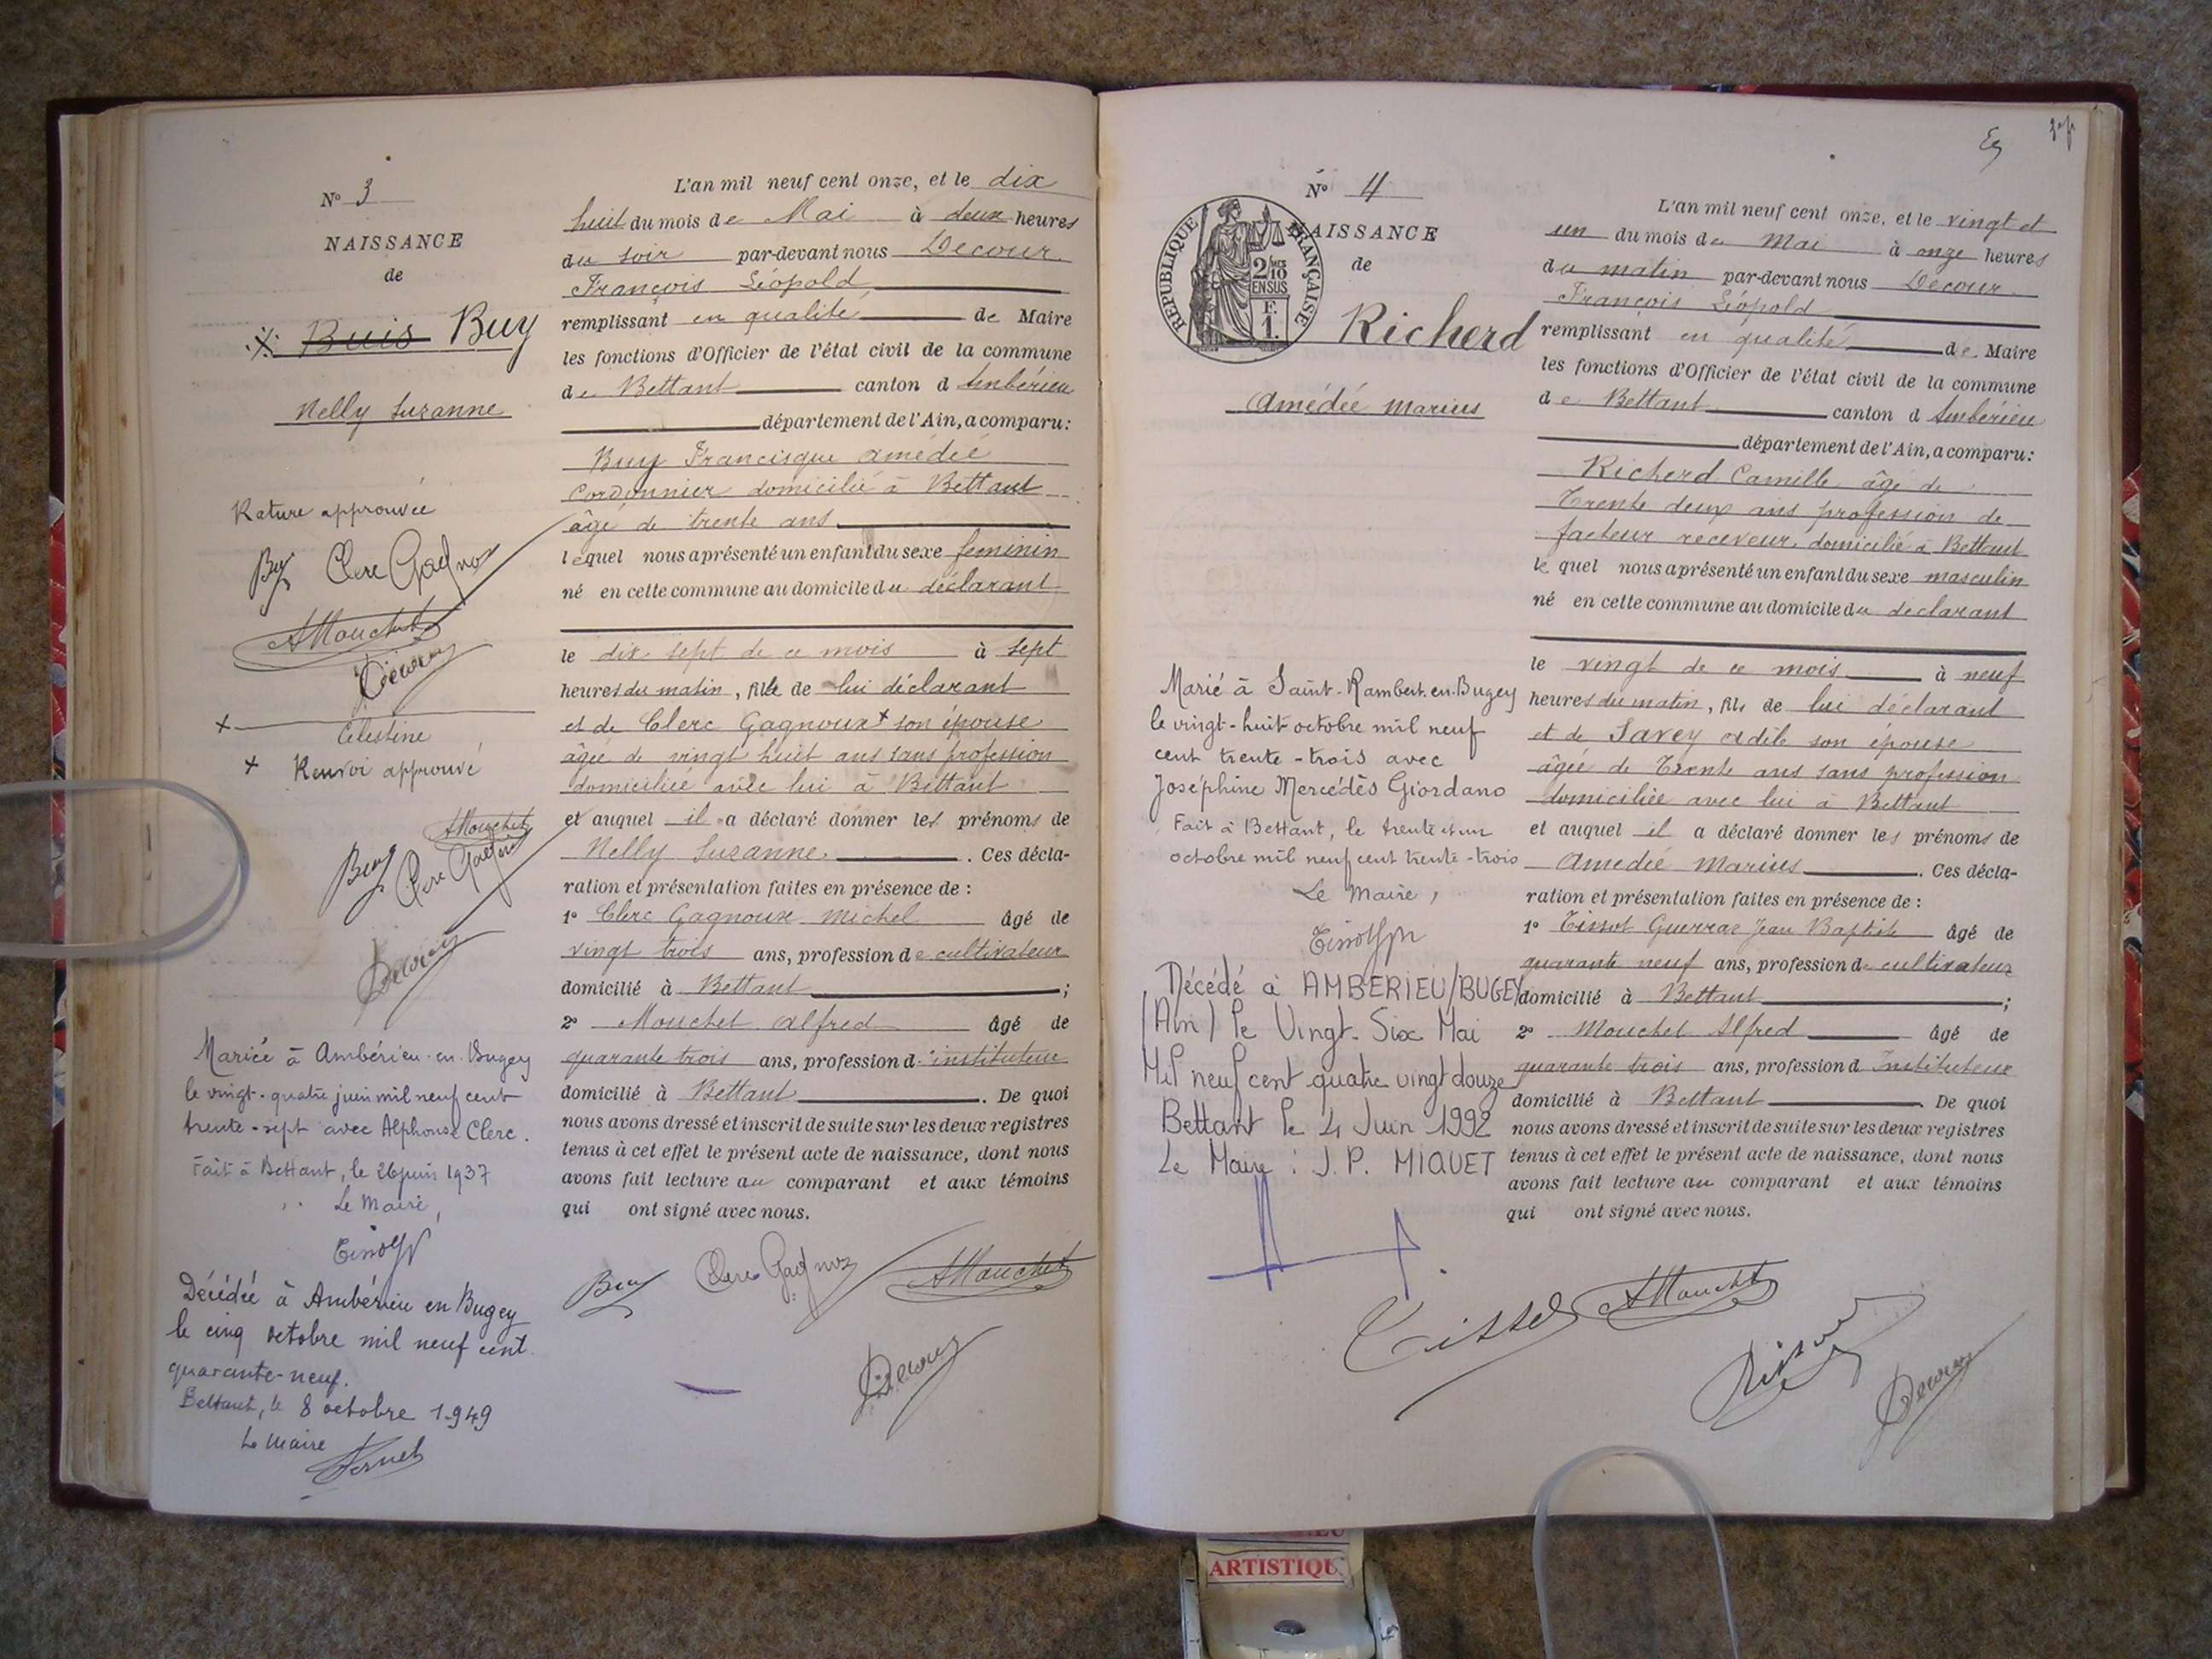 N° 3
NAISSANCE
de
Buis Buy
Nelly Suzanne
Rature approuvée
Buy Clerc Gagnoux
AMouchet
Decour
+
Célestine
+ Renvoi approuvé
AMouchet
Buy Clerc Gagnoux
Decour
Mariée à Ambérieu-en-Bugey
le vingt-quatre juin mil neuf cent
trente-sept avec Alphonse Clerc.
Fait à Bettant, le 26 juin 1937
Le Maire,
Décédée à Ambérieu en Bugey
le cinq octobre mil neuf cent
quarante-neuf.
Bettant, le 8 octobre 1949
Le Maire
L'an mil neuf cent onze, et le dix
huit du mois de Mai à deux heures
du soir par-devant nous Decour
François Léopold
remplissant en qualité de Maire
les fonctions d'Officier de l'état civil de la commune
de Bettant canton d'Ambérieu
département de l'Ain, a comparu:
Buy Francisque Amédée
Cordonnier domicilié à Bettant
âgé de trente ans
lequel nous a présenté un enfant du sexe féminin
né en cette commune au domicile du déclarant
le dix sept de ce mois à sept
heures du matin, fille de lui déclarant
et de Clerc Gagnoux + son épouse
âgée de vingt huit ans sans profession
domiciliée avec lui à Bettant
et auquel il a déclaré donner les prénoms de
Nelly Suzanne. Ces décla-
ration et présentation faites en présence de :
1° Clerc Gagnoux Michel âgé de
vingt trois ans, profession de cultivateur
domicilié à Bettant ;
2° Mouchet Alfred âgé de
quarante trois ans, profession d'instituteur
domicilié à Bettant. De quoi
nous avons dressé et inscrit de suite sur les deux registres
tenus à cet effet le présent acte de naissance, dont nous
avons fait lecture au comparant et aux témoins
qui ont signé avec nous.
Buy Clerc Gagnoux AMouchet
Decour
N° 4
NAISSANCE
de
RÉPUBLIQUE FRANÇAISE
2/10
EN SUS
F.
1.
Richerd
Amédée Marius
Marié à Saint-Rambert-en-Bugey
le vingt-huit octobre mil neuf
cent trente-trois avec
Joséphine Mercédès Giordano
Fait à Bettant, le trente et un
octobre mil neuf cent trente-trois
Le Maire,
Décédé à AMBERIEU/BUGEY
(Ain) le Vingt-Six Mai
Mil neuf cent quatre vingt douze
Bettant le 4 Juin 1992
Le Maire : J.P. MIQUET
L'an mil neuf cent onze, et le vingt et
un du mois de Mai à onze heures
du matin par-devant nous Decour
François Léopold
remplissant en qualité de Maire
les fonctions d'Officier de l'état civil de la commune
de Bettant canton d'Ambérieu
département de l'Ain, a comparu:
Richerd Camille âgé de
Trente deux ans profession de
facteur receveur, domicilié à Bettant
lequel nous a présenté un enfant du sexe masculin
né en cette commune au domicile du déclarant
le vingt de ce mois à neuf
heures du matin, fils de lui déclarant
et de Savey Adèle son épouse
âgée de Trente ans sans profession
domiciliée avec lui à Bettant
et auquel il a déclaré donner les prénoms de
Amédée Marius. Ces décla-
ration et présentation faites en présence de :
1° Tissot Guerraz Jean Baptiste âgé de
quarante neuf ans, profession de cultivateur
domicilié à Bettant ;
2° Mouchet Alfred âgé de
quarante trois ans, profession d Instituteur
domicilié à Bettant. De quoi
nous avons dressé et inscrit de suite sur les deux registres
tenus à cet effet le présent acte de naissance, dont nous
avons fait lecture au comparant et aux témoins
qui ont signé avec nous.
Tissot AMouchet
Decour
ARTISTIQUE